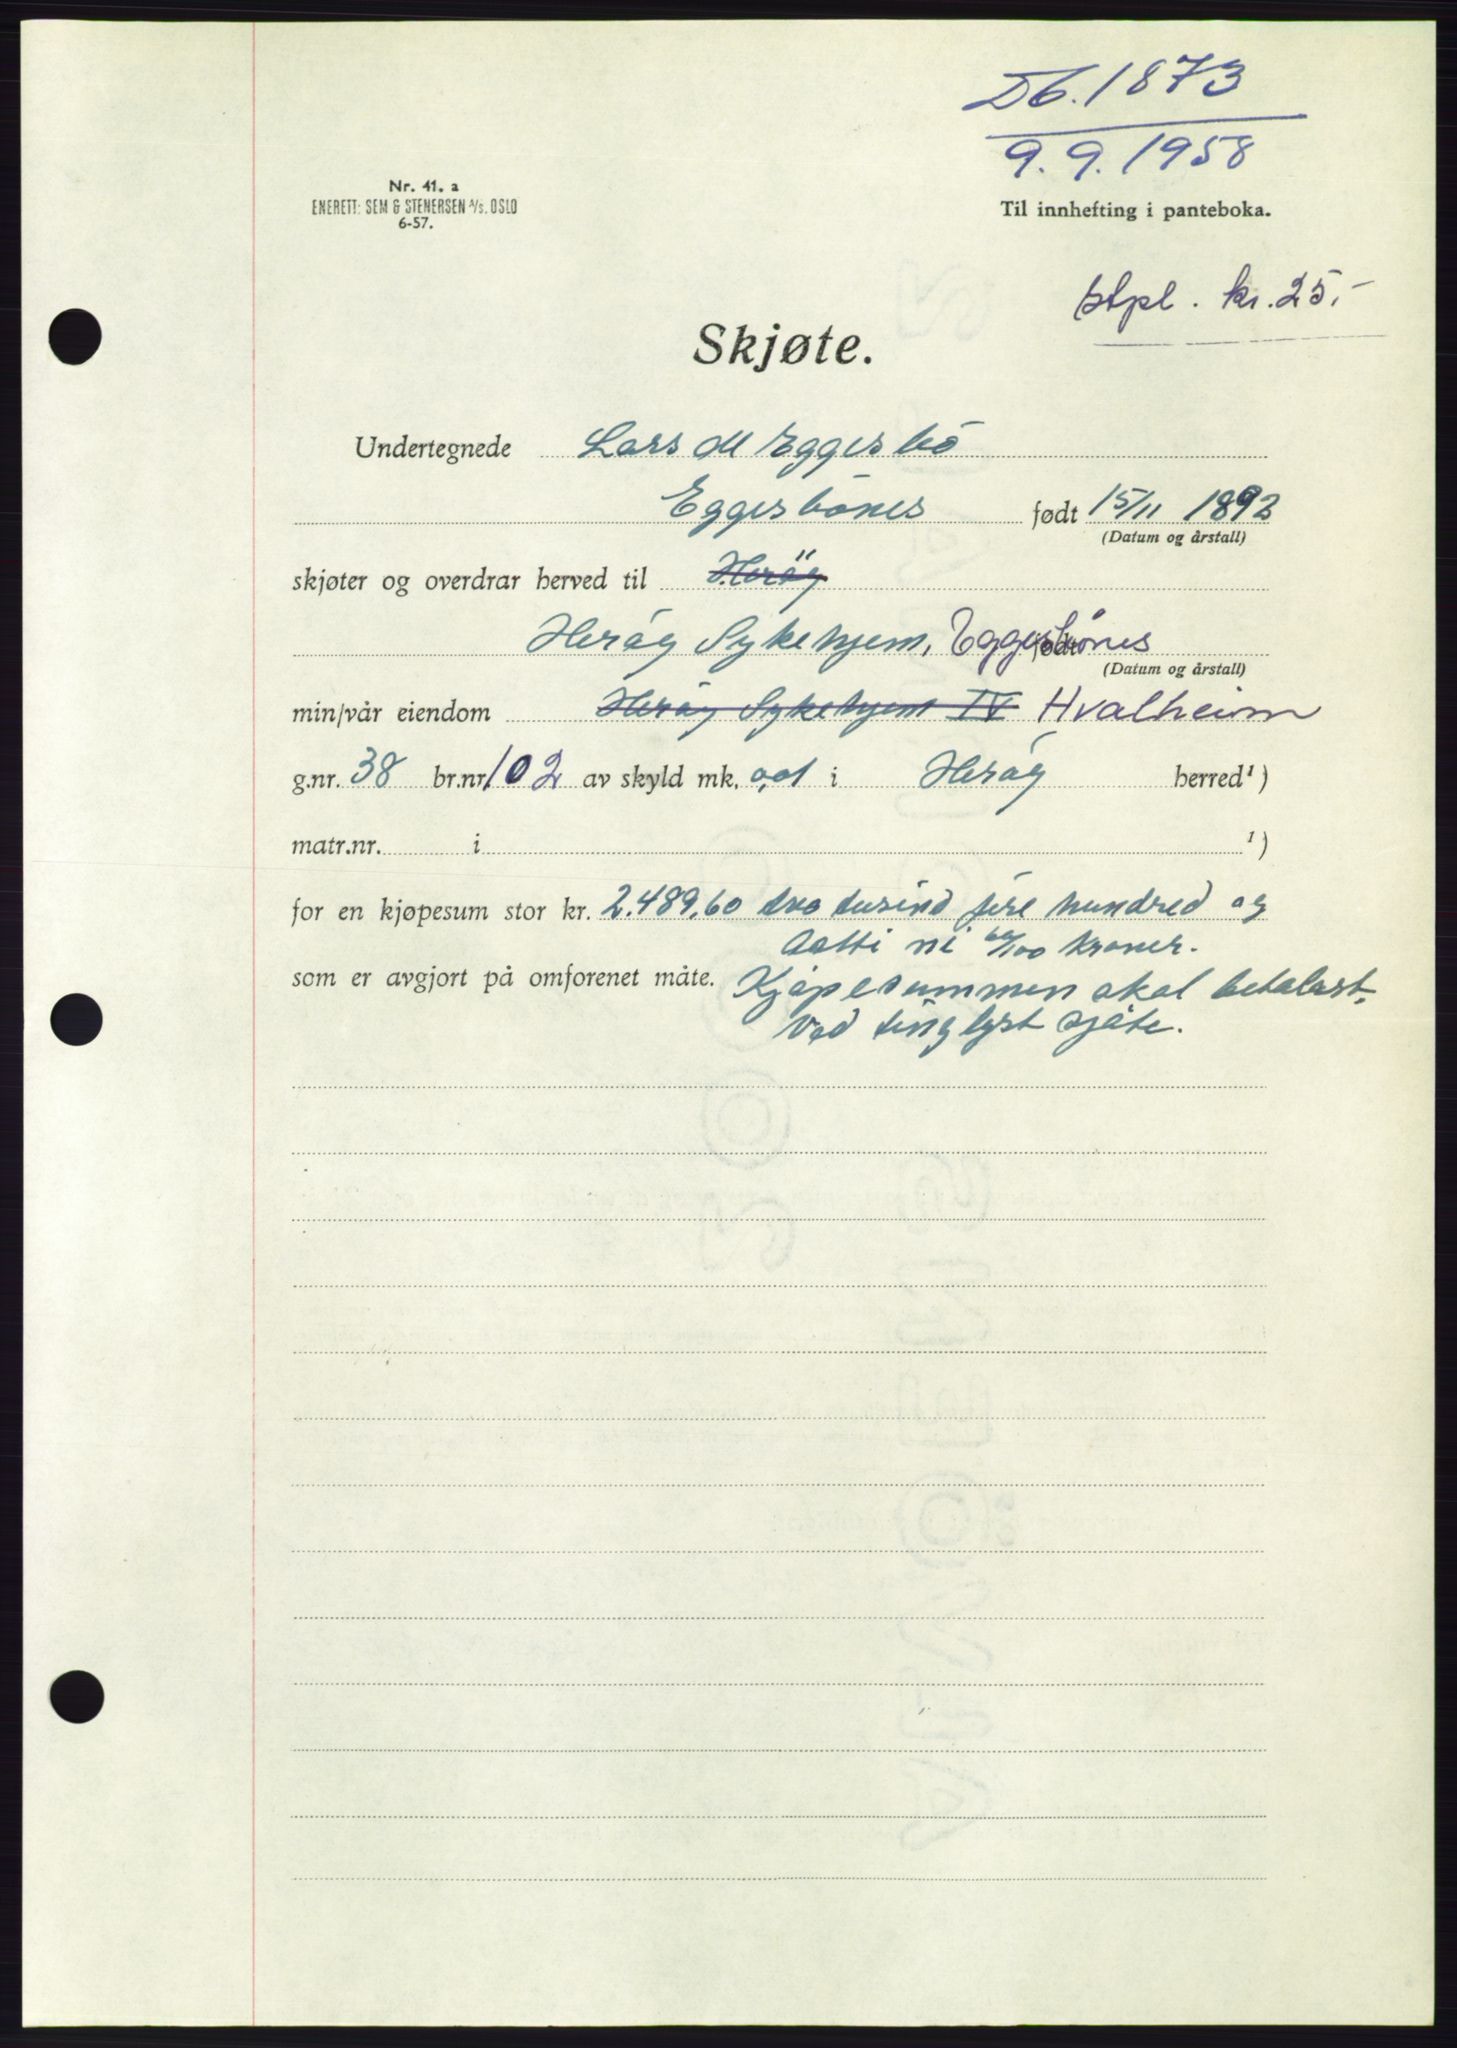 Db. 1873
9.9.1958
Nr. 41. a
ENERETT: SEM & STENERSEN A/S. OSLO
6-57.
Til innhefting i panteboka.
Stpl. kr. 25,-
Skjøte.
Undertegnede Lars M Eggesbö
Eggesbönes født 15/11 1892
(Datum og årstall)
skjøter og overdrar herved til Heröy
Heröy Sykehjem, Eggesbönes født
(Datum og årstall)
min/vår eiendom Heröy Sykehjem IV Hvalheim
g.nr. 38 br.nr. 102 av skyld mk. 0,01 i Heröy herred¹)
matr.nr. i ¹)
for en kjøpesum stor kr. 2.489,60 tvo tusind fire hundred og
aatti ni 60/100 kroner.
som er avgjort på omforenet måte. Kjöpesummen skal betalast
ved tinglyst sjöte.